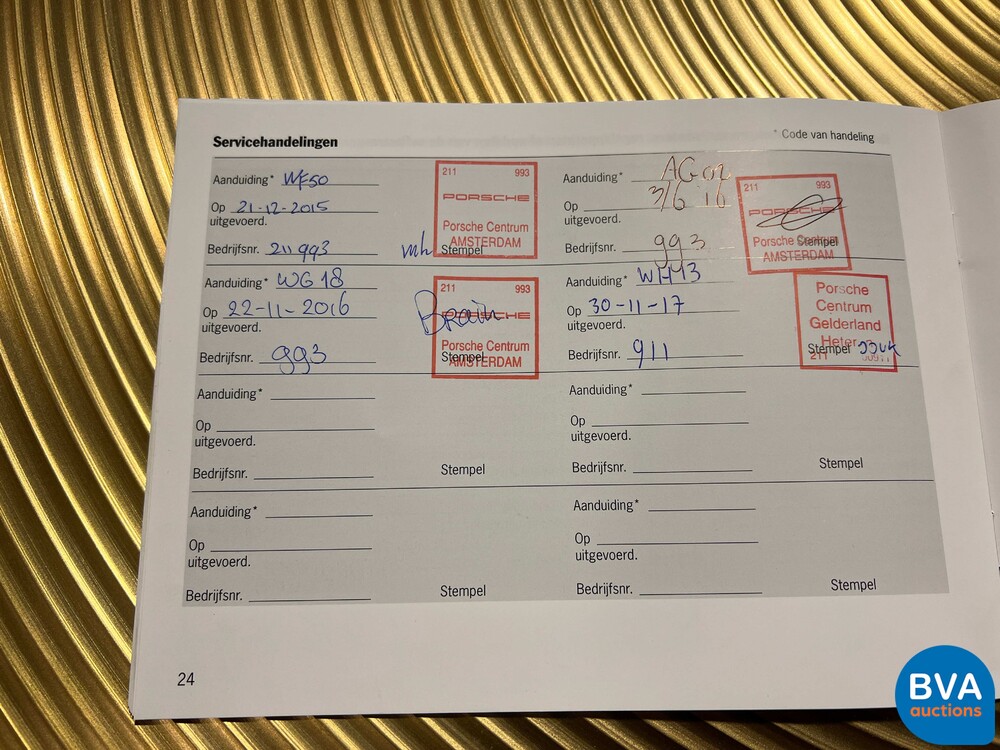 Servicehandelingen
* Code van handeling
Aanduiding* WF50
Op 21-12-2015
uitgevoerd.
Bedrijfsnr. 211993
Stempel
211 993
PORSCHE
Porsche Centrum
AMSTERDAM
Aanduiding* AG02
Op 3/6 16
uitgevoerd.
Bedrijfsnr. 993
Stempel
211 993
PORSCHE
Porsche Centrum
AMSTERDAM
Aanduiding* WG18
Op 22-11-2016
uitgevoerd.
Bedrijfsnr. 993
Stempel
211 993
PORSCHE
Porsche Centrum
AMSTERDAM
Aanduiding* WHH3
Op 30-11-17
uitgevoerd.
Bedrijfsnr. 911
Stempel
Porsche
Centrum
Gelderland
Heteren
211
Aanduiding*
Op
uitgevoerd.
Bedrijfsnr.
Stempel
Aanduiding*
Op
uitgevoerd.
Bedrijfsnr.
Stempel
Aanduiding*
Op
uitgevoerd.
Bedrijfsnr.
Stempel
Aanduiding*
Op
uitgevoerd.
Bedrijfsnr.
Stempel
24
BVA
auctions